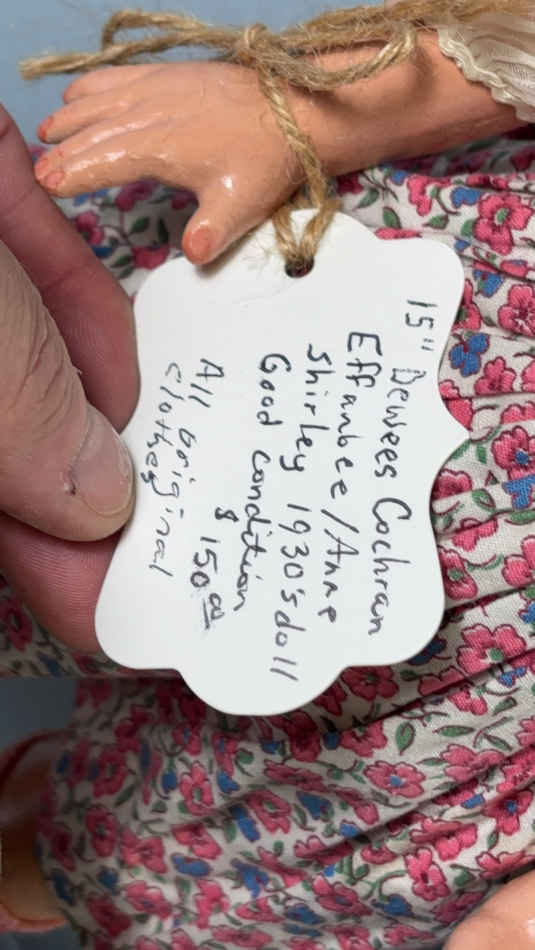 15" Dewees Cochran
Effanbee/Anne
Shirley 1930's doll
Good condition
$150.00
All original
clothes